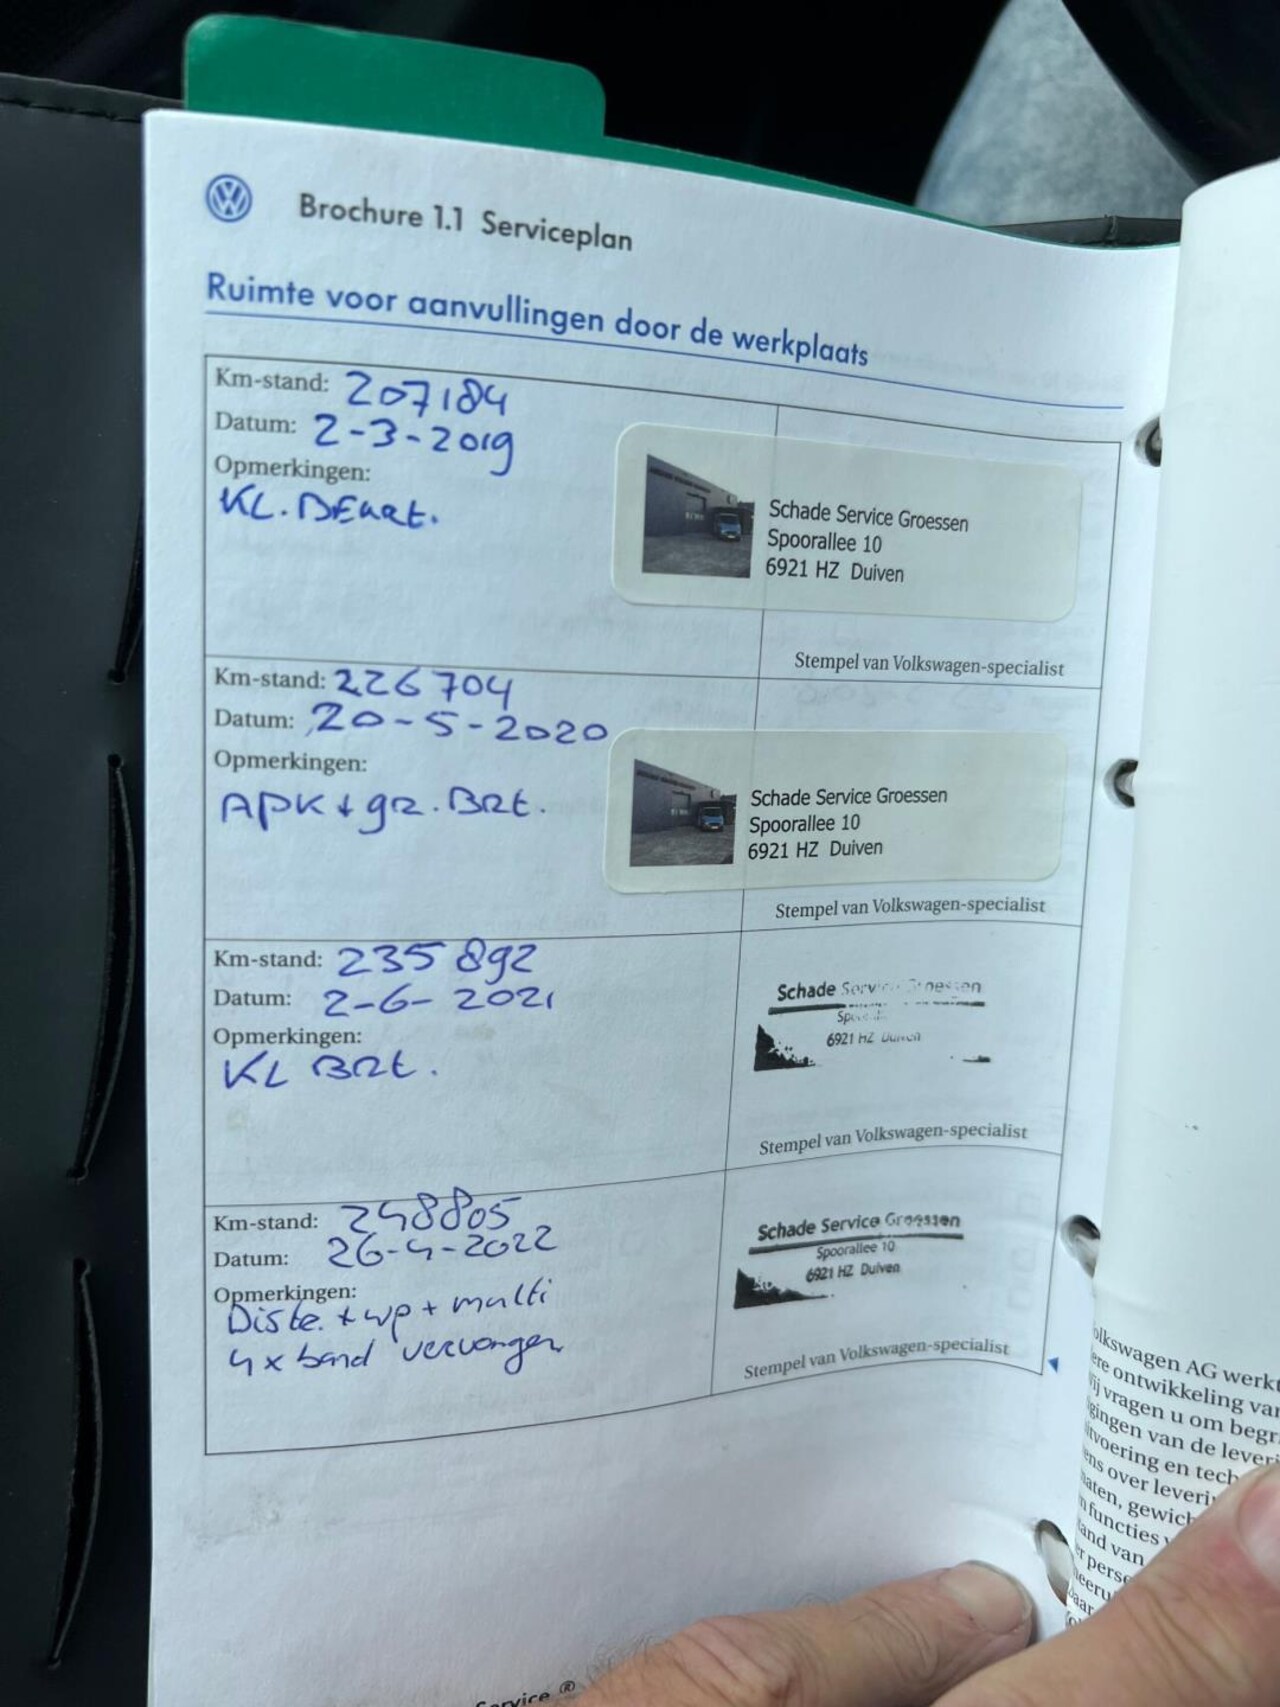 Brochure 1.1 Serviceplan
Ruimte voor aanvullingen door de werkplaats
Km-stand: 207184
Datum: 2-3-2019
Opmerkingen:
KL.
Schade Service Groessen
Spoorallee 10
6921 HZ Duiven
Stempel van Volkswagen-specialist
Km-stand: 226704
Datum: 20-5-2020
Opmerkingen:
APK + gr. BRt.
Schade Service Groessen
Spoorallee 10
6921 HZ Duiven
Stempel van Volkswagen-specialist
Km-stand: 235892
Datum: 2-6-2021
Opmerkingen:
KL BRt.
Schade Service Groessen
6921 HZ Duiven
Stempel van Volkswagen-specialist
Km-stand: 248805
Datum: 26-4-2022
Opmerkingen:
Distr. + wp + multi
4 x band vervangen
Schade Service Groessen
Spoorallee 10
6921 HZ Duiven
Stempel van Volkswagen-specialist
Service ®
olkswagen AG werkt
ere ontwikkeling van
ij vragen u om begr
gingen van de leveri
itvoering en tech
ens over leverin
naten, gewich
n functies v
and van
r pers